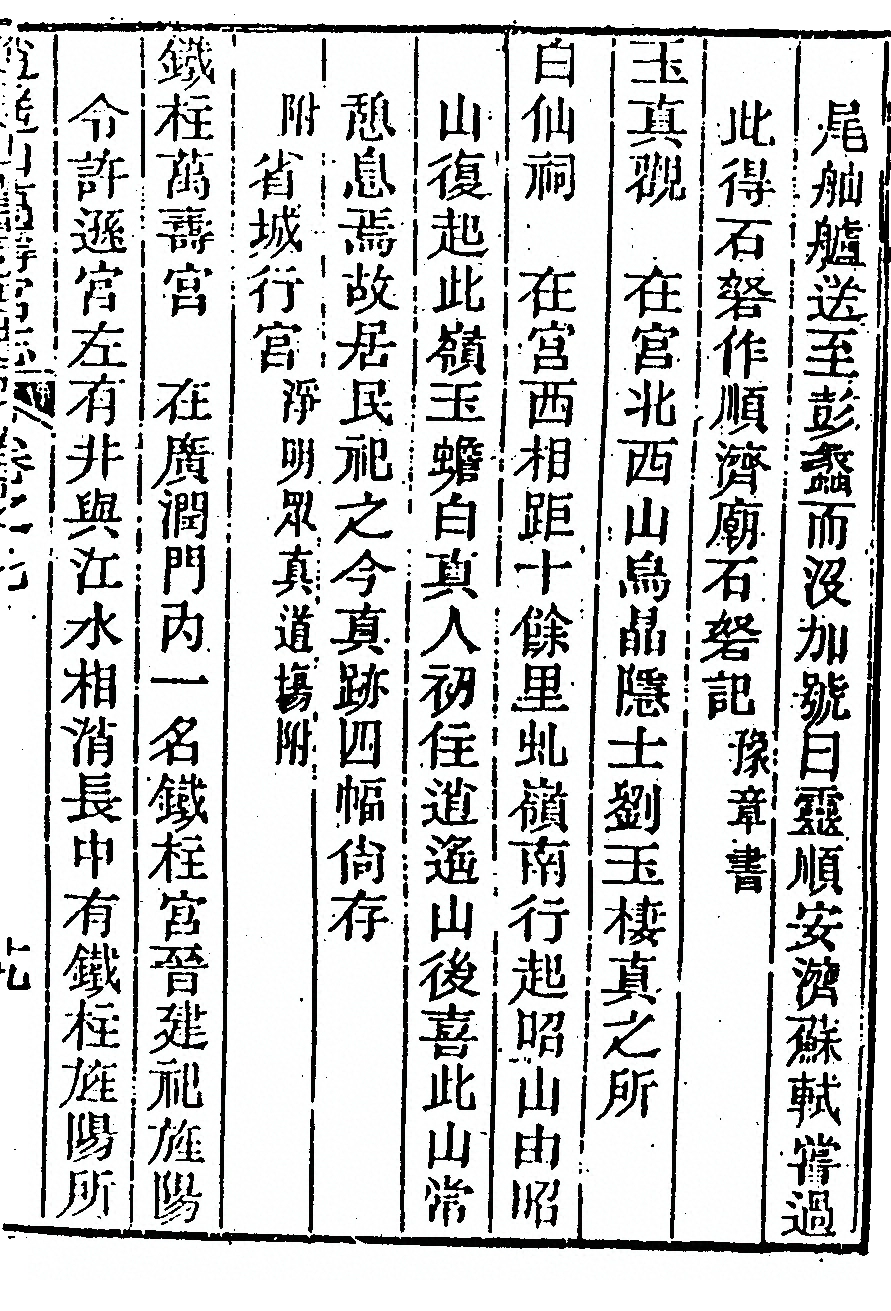 尾舳艫送至彭蠡而沒加號曰靈順安濟蘇軾嘗過
此得石砮作順濟廟石砮記豫章書
玉真觀　在宮北西山烏晶隱士劉玉棲真之所
白仙祠　在宮西相距十餘里虬嶺南行起昭山由昭
山復起此嶺玉蟾白真人初住逍遙山後喜此山常
憩息焉故居民祀之今真跡四幅尙存
附省城行宮淨明眾真道場附
鐵柱萬壽宮　在廣潤門內一名鐵柱宮晉建祀旌陽
令許遜宮左有井與江水相消長中有鐵柱旌陽所
逍遙山萬壽宮志　卷之七